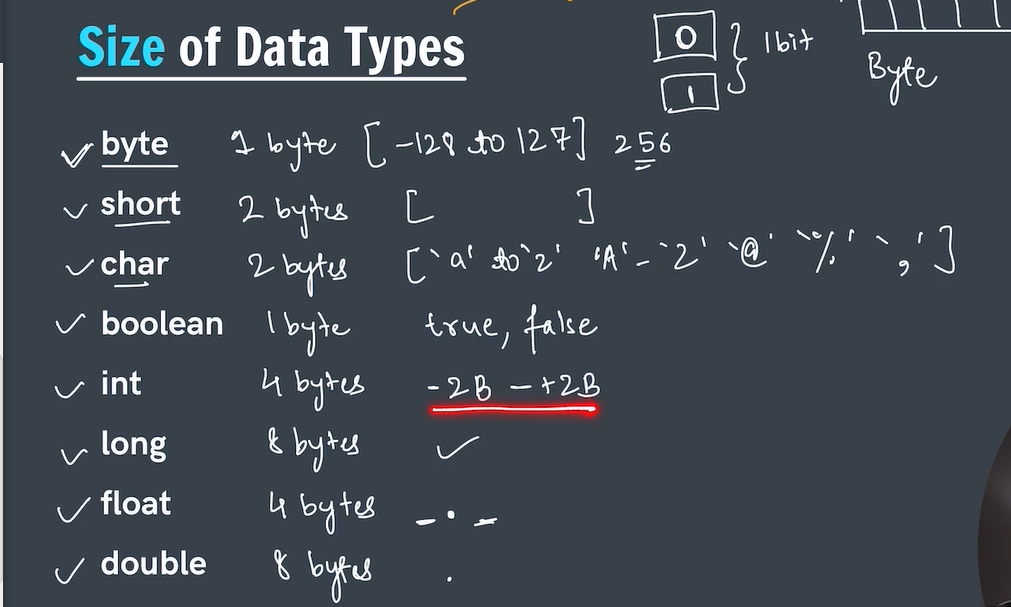 Size of Data Types
0
1
1bit
Byte
byte 1 byte [-128 to 127] 256
short 2 bytes [ ]
char 2 bytes ['a' to 'z' 'A'-'Z' '@' '%' ',']
boolean 1 byte true, false
int 4 bytes -2B - +2B
long 8 bytes
float 4 bytes - . -
double 8 bytes .